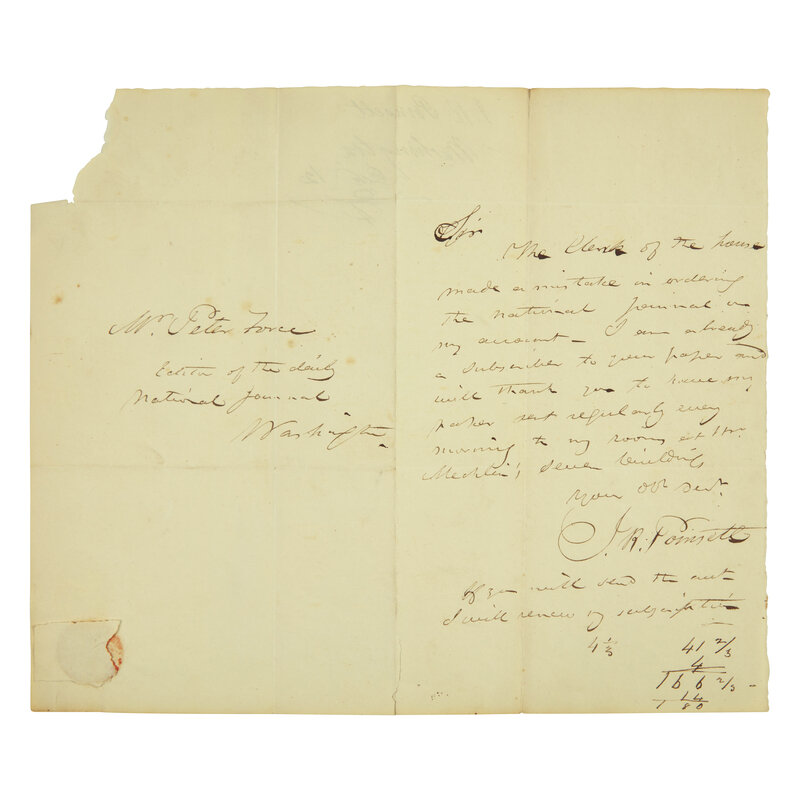 Mr. Peter Force
Editor of the daily
National Journal
Washington
Sir
The Clerk of the house
made a mistake in ordering
the National Journal on
my account – I am already
a subscriber to your paper and
will thank you to have my
paper sent regularly every
morning to my rooms at Mr.
Mechlin's, seven buildings
Your obt Servt.
J. R. Poinsett
If you will send the acct
I will renew my subscription
4 1/3 41 2/3
4
166 2/3 -
14
180